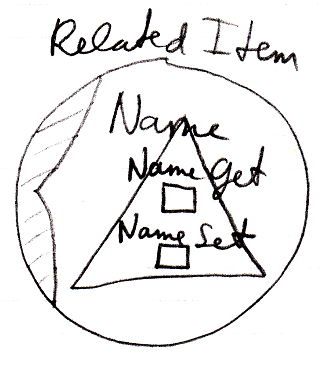 Related Item
Name
Name get
Name set